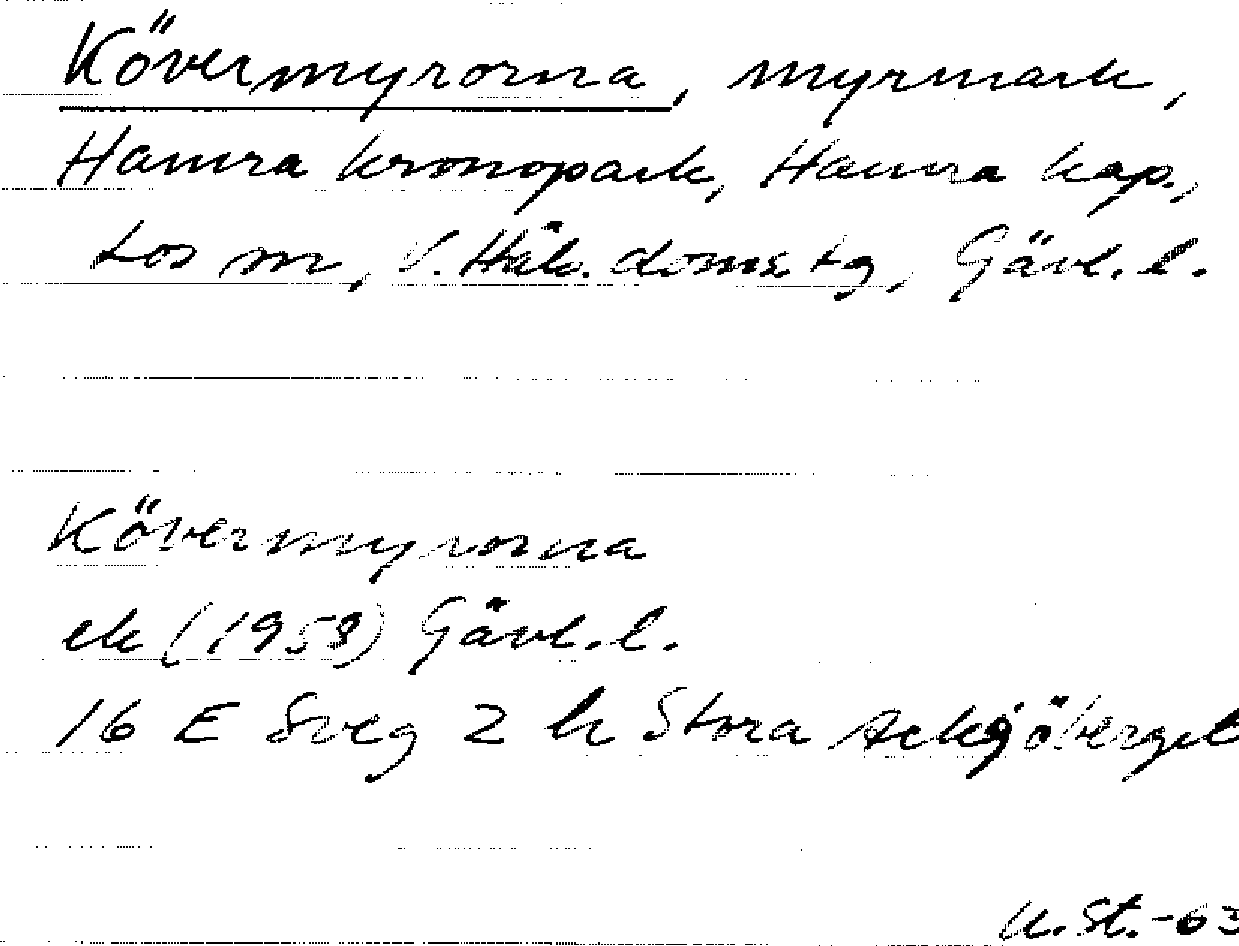 Kövermyrorna, myrmark,
Hamra kronopark, Hamra kap.,
Los sn, V. Häls. doms. tg, Gävl. l.
Kövermyrorna
ek (1958) Gävl. l.
16 E Sveg 2 h Stora
U. St. -63